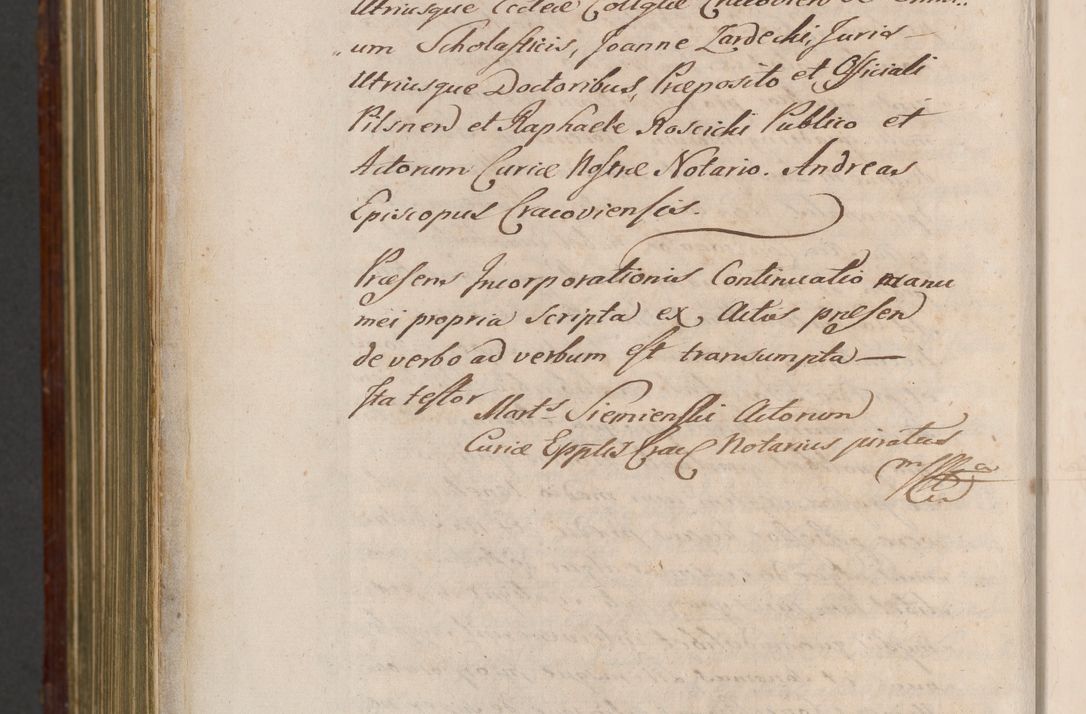 Utriusque
um Scholasticis, Joanne Zardecki, Juris
Utriusque Doctoribus, Præposito et Officiali
Pilsnen et Raphaele Roscicki Publico et
Actorum Curiæ Nostræ Notario. Andreas
Episcopus Cracoviensis.
Præsens Incorporationis Continuatio manu
mei propria scripta ex Actis præsen
de verbo ad verbum est transumpta
Ita testor
Mart.s Siemienski Actorum
Curiæ Epplis Crac Notarius